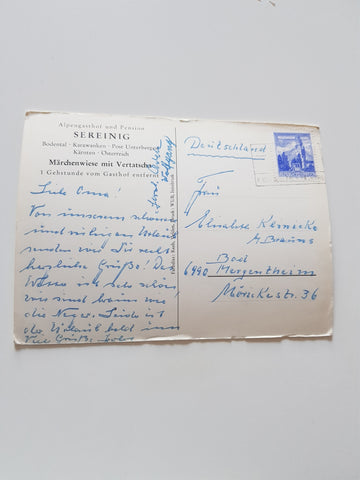 Alpengasthof und Pension
SEREINIG
Bodental · Karawanken · Post Unterbergen
Kärnten · Österreich
Märchenwiese mit Vertatscha
1 Gehstunde vom Gasthof entfernt
Liebe Oma!
Von unserem schönen
und ruhigen Urlaub
senden wir Dir recht
herzliche Grüße! Das
Wetter ist sehr schön
wir sind braun wie
die Neger. Leider ist
der Urlaub bald um
Viele Grüße
Wolfgang
Deutschland
Frau
Elisabeth
Bad
6990 Mergentheim
Mörikestr. 36